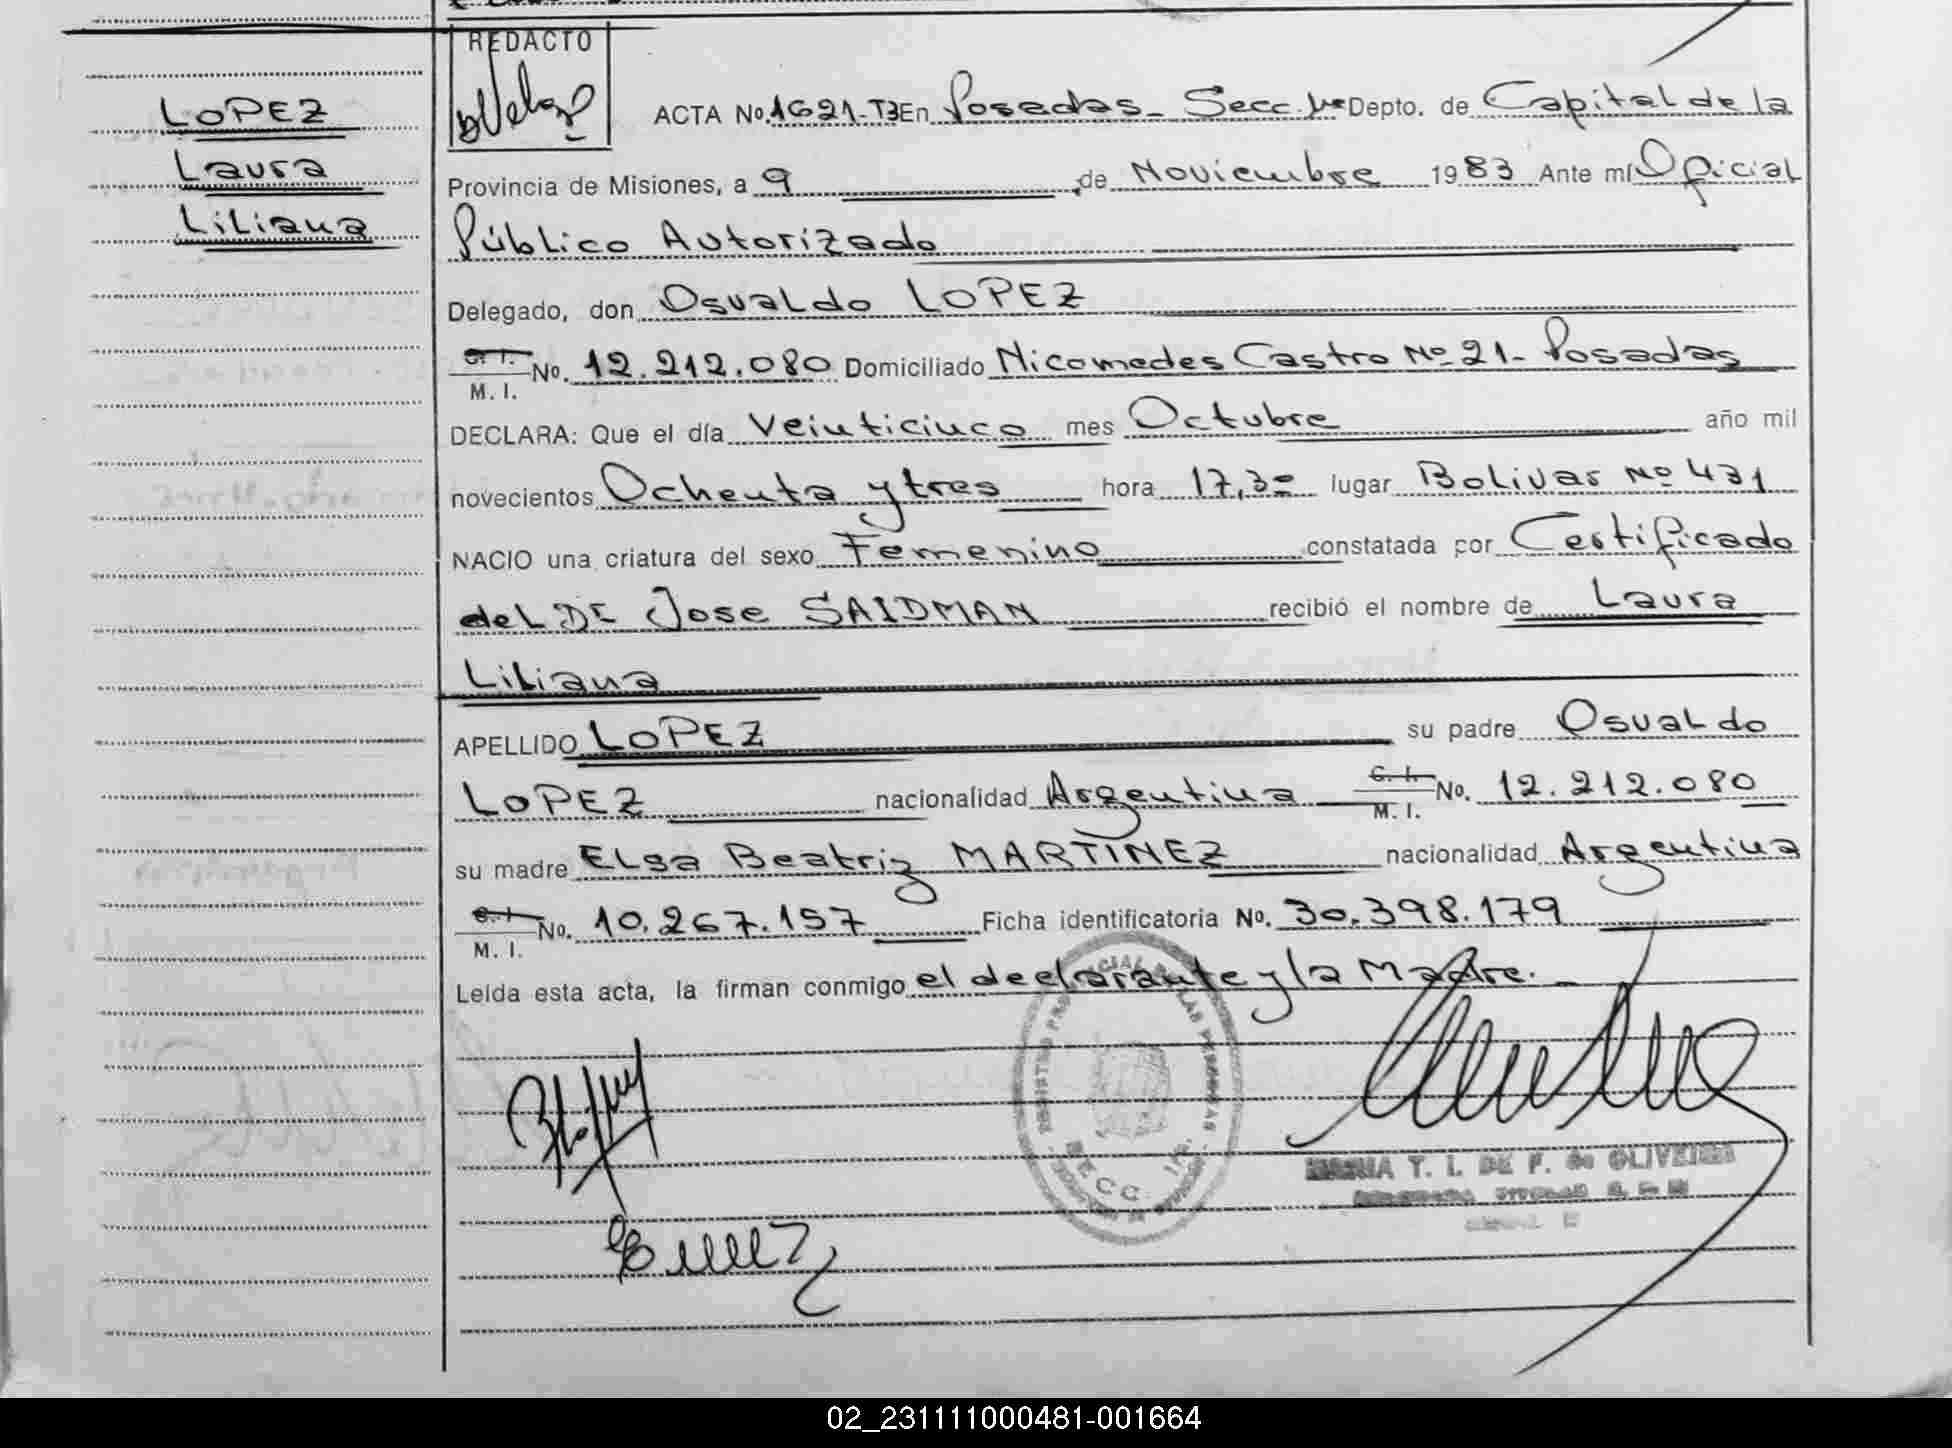 REDACTO
LOPEZ
Laura
Liliana
ACTA No. 1621-T3 En Posadas - Secc. 1ra Depto. de Capital de la
Provincia de Misiones, a 9 de Noviembre 1983 Ante mí Oficial
Público Autorizado
Delegado, don Osvaldo LOPEZ
C. I.
M. I. No. 12.212.080 Domiciliado Nicomedes Castro Nº 21 - Posadas
DECLARA: Que el día Veinticinco mes Octubre año mil
novecientos Ochenta y tres hora 17,30 lugar Bolivar Nº 431
NACIO una criatura del sexo Femenino constatada por Certificado
del DR Jose SAIDMAN recibió el nombre de Laura
Liliana
APELLIDO LOPEZ su padre Osvaldo
LOPEZ nacionalidad Argentina C. I.
M. I. No. 12.212.080
su madre Elsa Beatriz MARTINEZ nacionalidad Argentina
C. I.
M. I. No. 10.267.157 Ficha identificatoria No. 30.398.179
Leída esta acta, la firman conmigo el declarante y la Madre.
REGISTRO PROVINCIAL DE LAS PERSONAS
SECC. 1ra.
MARIA T. I. DE F. de OLIVEIRA
02_231111000481-001664